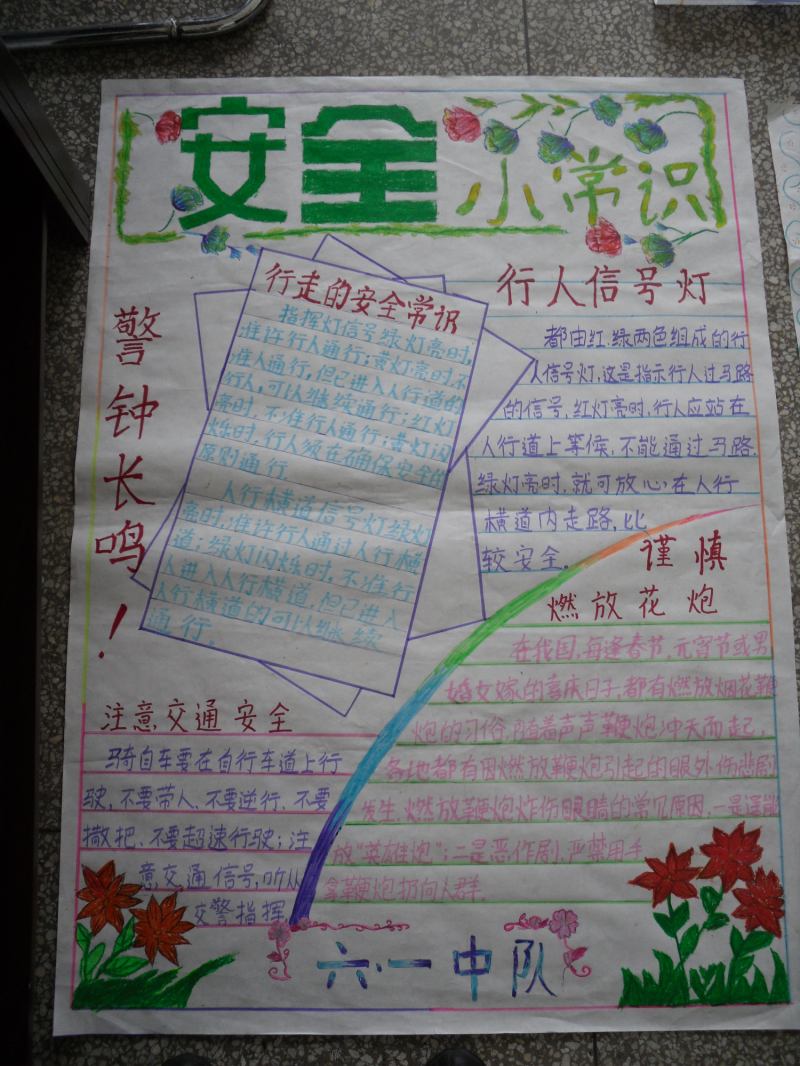 安全小常识
警钟长鸣！
行走的安全常识
指挥灯信号绿灯亮时,
准许行人通行;黄灯亮时,不
准人通行,但已进入人行道的
行人,可以继续通行;红灯
亮时,不准行人通行;黄灯闪
烁时,行人须在确保安全的
原则通行.
人行横道信号灯绿灯
亮时,准许行人通过人行横
道;绿灯闪烁时,不准行
人进入人行横道,但已进入
人行横道的可以继续
通行.
行人信号灯
都由红.绿两色组成的行
人信号灯,这是指示行人过马路
的信号,红灯亮时,行人应站在
人行道上等候,不能通过马路.
绿灯亮时,就可放心在人行
横道内走路,比
较安全.
谨慎
燃放花炮
在我国,每逢春节,元宵节或男
婚女嫁的喜庆日子,都有燃放烟花鞭
炮的习俗.随着声声鞭炮冲天而起,
各地都有因燃放鞭炮引起的眼外伤悲剧
发生.燃放鞭炮炸伤眼睛的常见原因,一是逞能
放“英雄炮”;二是恶作剧,严禁用手
拿鞭炮扔向人群.
注意交通安全
骑自车要在自行车道上行
驶,不要带人、不要逆行、不要
撒把、不要超速行驶;注
意交通信号,听从
交警指挥.
六·一中队